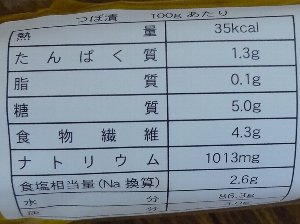 つぼ漬 100gあたり
熱量 35kcal
たんぱく質 1.3g
脂質 0.1g
糖質 5.0g
食物繊維 4.3g
ナトリウム 1013mg
食塩相当量(Na換算) 2.6g
水分 86.3g